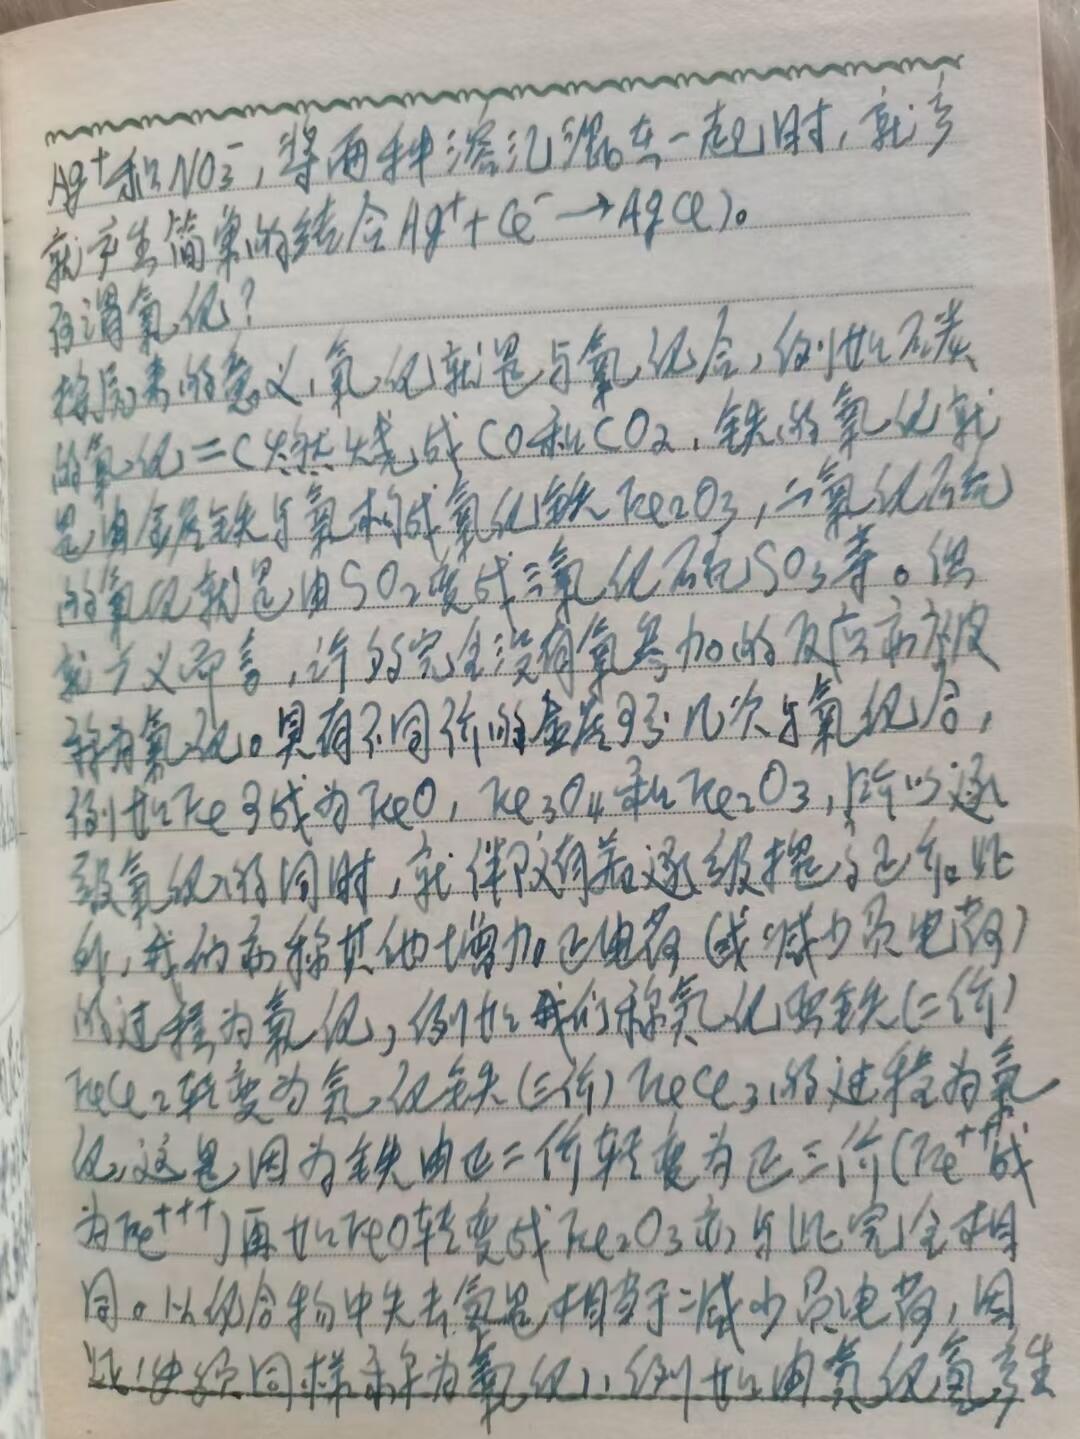 Ag⁺和NO₃⁻,将两种溶汇混在一起时,就会
就产生简单的结合Ag⁺+Cl⁻→AgCl)。
何谓氧化?
按原来的意义,氧化就是与氧化合,例如碳
的氧化=C燃烧成CO和CO₂,铁的氧化就
是由金属铁与氧构成氧化铁Fe₂O₃,二氧化硫
的氧化就是由SO₂变成三氧化硫SO₃等。但
就广义而言,许多完全没有氧参加的反应亦被
称为氧化。具有不同价的金属可几次与氧化合,
例如Fe可成为FeO,Fe₃O₄和Fe₂O₃,所以逐
级氧化的同时,就伴随有着逐级提高正价。此
外,我们亦称其他增加正电荷(或减少负电荷)
的过程为氧化,例如我们称氯化亚铁(二价)
FeCl₂转变为氯化铁(三价)FeCl₃的过程为氧
化,这是因为铁由正二价转变为正三价(Fe⁺⁺成
为Fe⁺⁺⁺)再如FeO转变成Fe₂O₃亦与此完全相
同。从化合物中失去氢是相当于减少负电荷,因
此必须同样称为氧化,例如由氯化氢产生